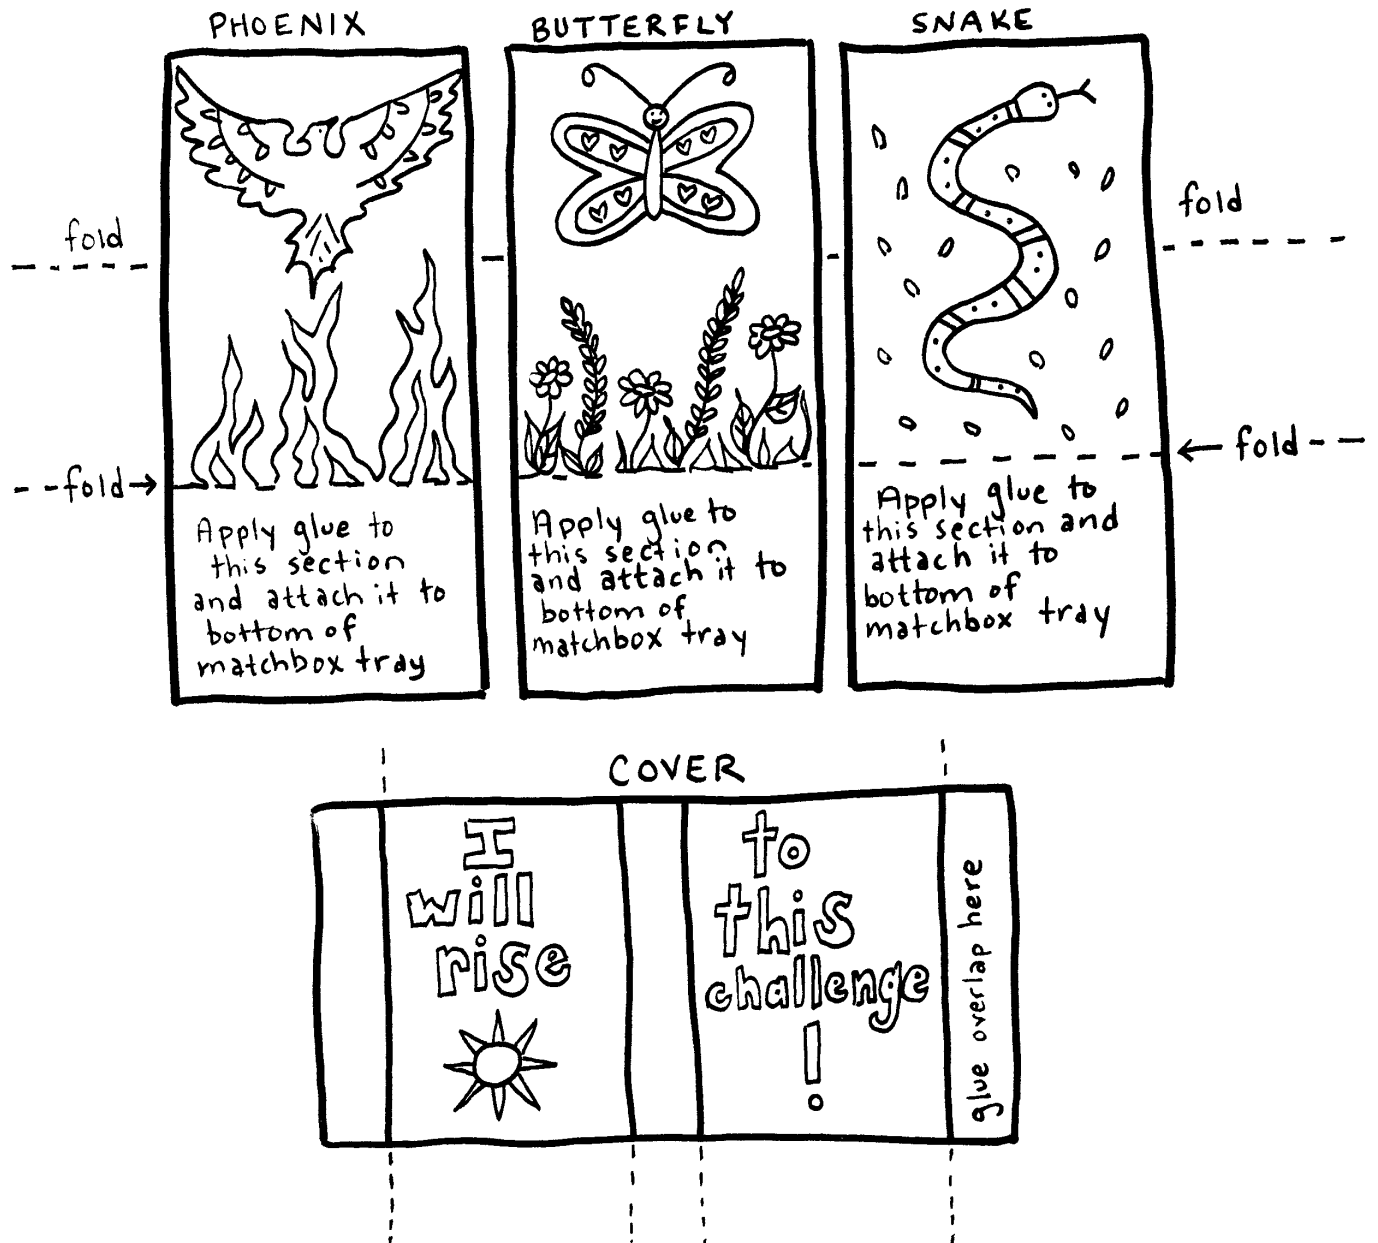 PHOENIX
BUTTERFLY
SNAKE
fold
fold
fold
fold
Apply glue to
this section
and attach it to
bottom of
matchbox tray
Apply glue to
this section
and attach it to
bottom of
matchbox tray
Apply glue to
this section and
attach it to
bottom of
matchbox tray
COVER
I
will
rise
to
this
challenge
!
glue overlap here